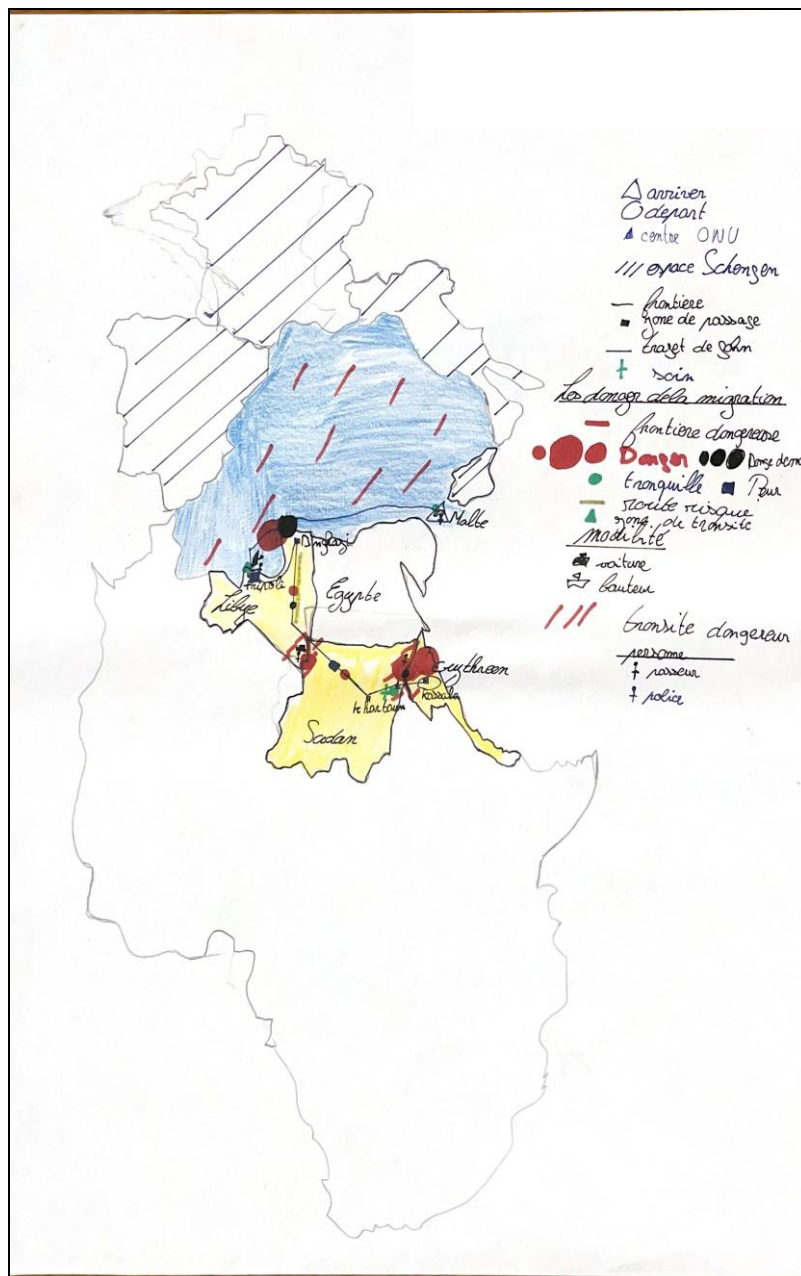 arriver
départ
centre ONU
espace Schengen
frontière
zone de passage
trajet de John
soin
Les danger dela migration
frontière dangereuse
Danger
tranquille
Peur
route risque
zone de transite
modilité
voiture
bauteur
transite dangereur
personne
passeur
police
Malte
Tripoli
Libye
Egypte
Kassala
Khartoum
Sudan